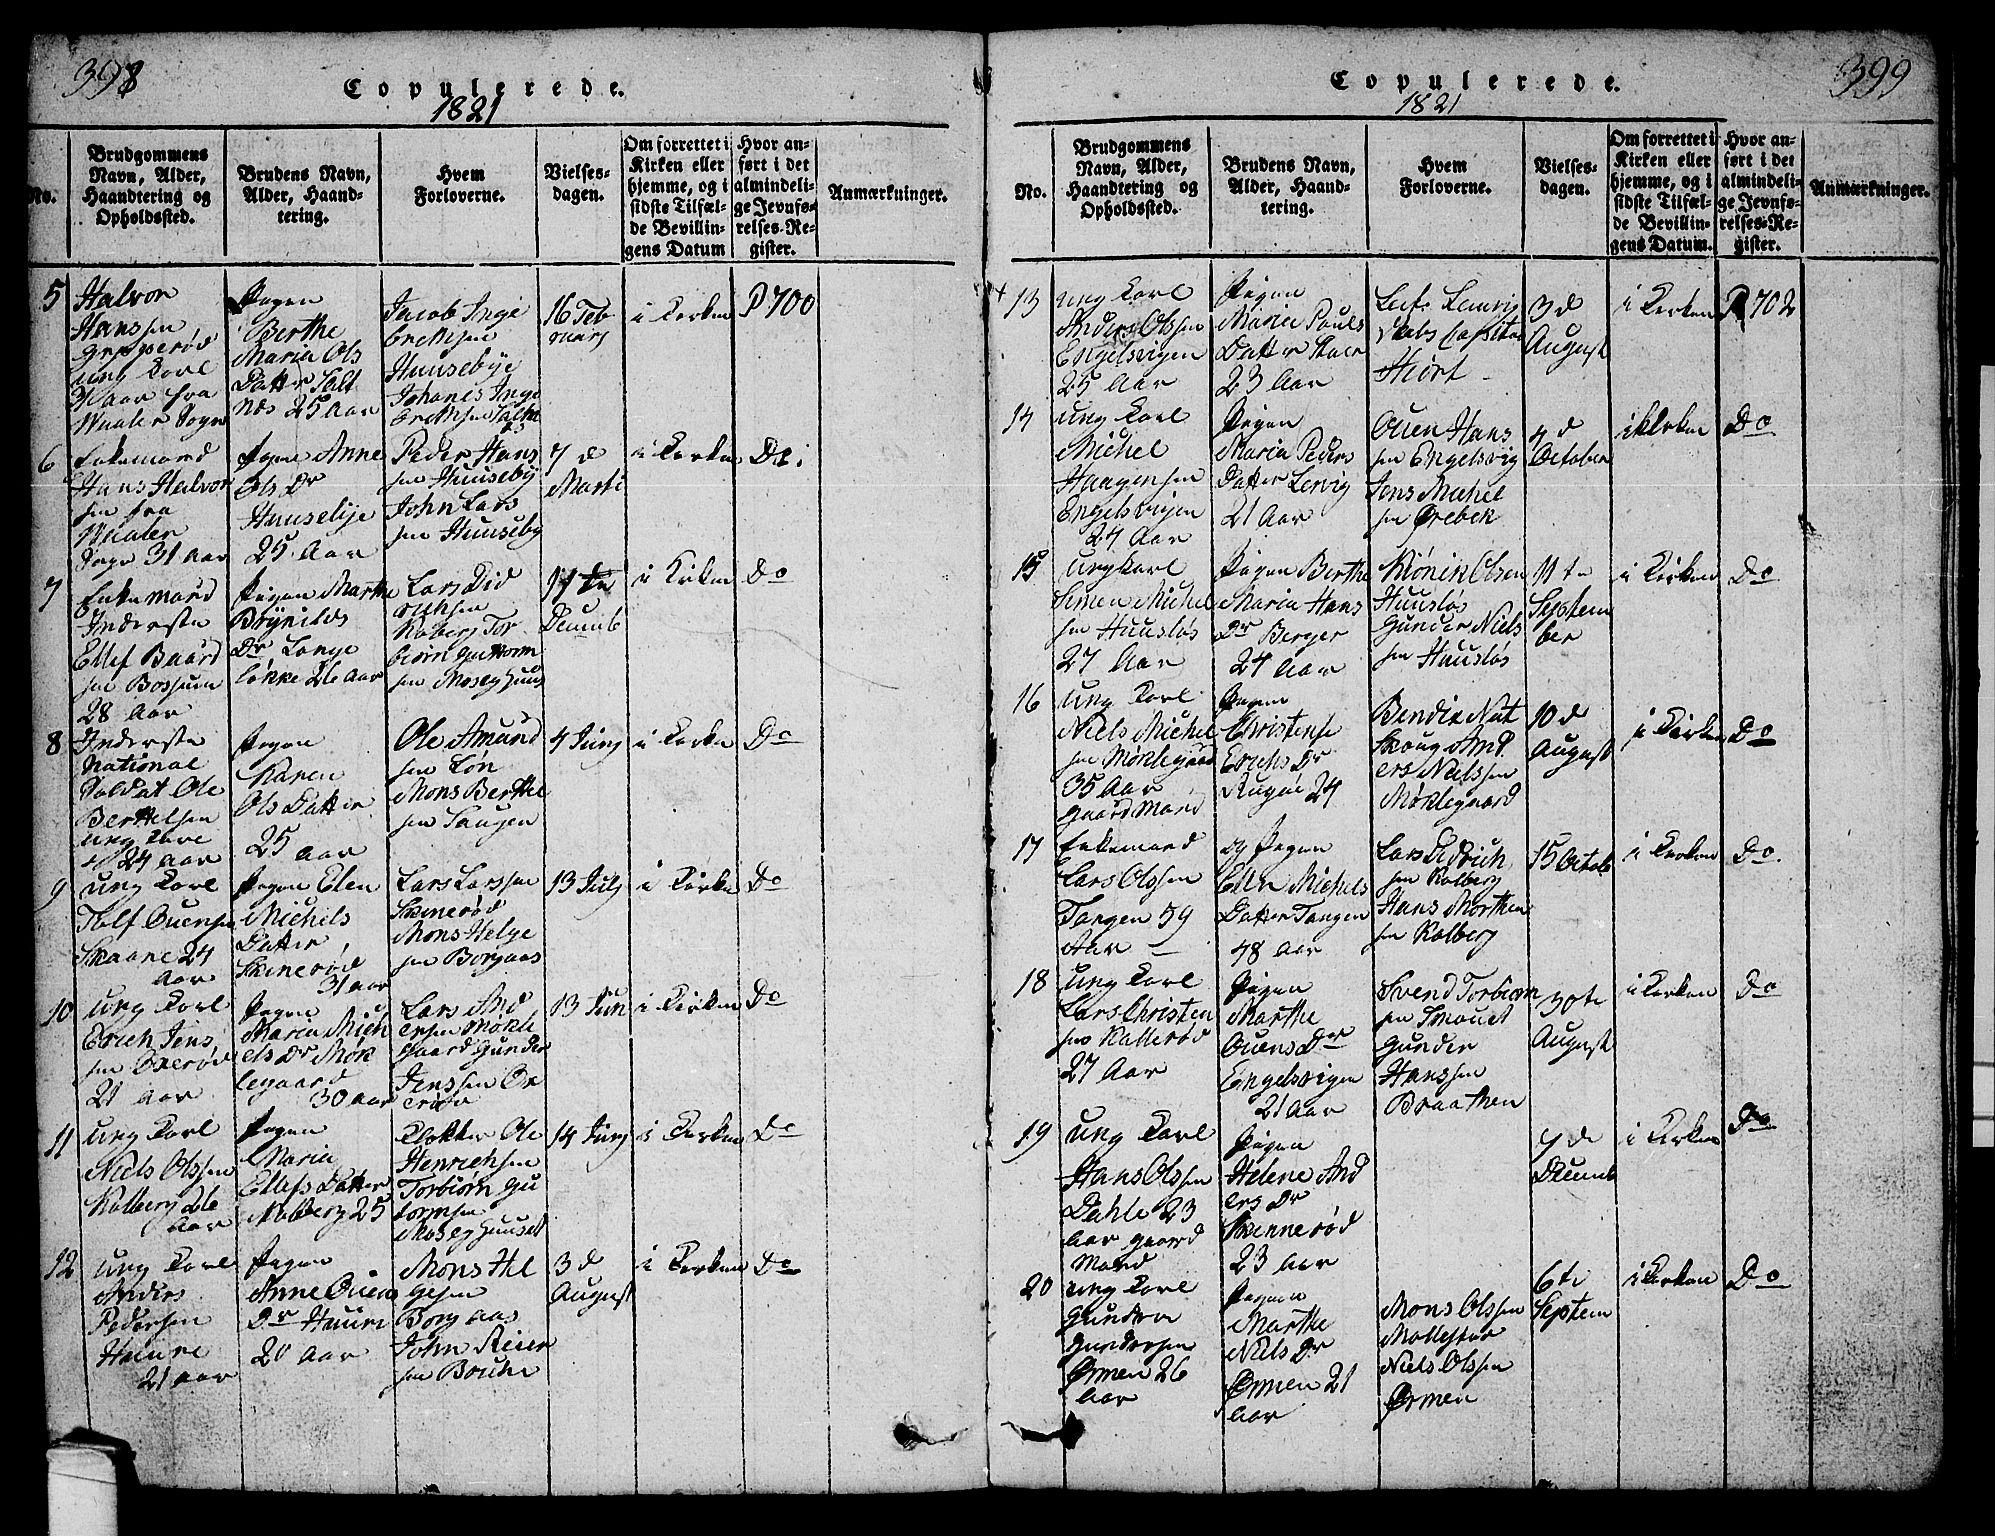 398
Copulerede.
1821
No.
Brudgommens
Navn, Alder,
Haandtering og
Opholdssted.
Brudens Navn,
Alder, Haand-
tering.
Hvem
Forloverne.
Vielses-
dagen.
Om forrettet i
Kirken eller
hjemme, og i
sidste Tilfæl-
de Bevillin-
gens Datum
Hvor an-
ført i det
almindeli-
ge Jevnfø-
relses-Re-
gister.
Anmærkninger.
5
Halvor
Hanssen
ung Karl
fra
Waaler Sogn
Pigen
Berthe
Maria Ols
Datter Salt
Næs 25 Aar
Jacob Inge
brethsen
Huusebye
Johanes Inge
brethsen
16 Feb
ruarj
i Kirken
P 700
6
Enkemand
Hans Halvor
sen fra
Waaler
Sogn 31 Aar
Pigen Anne
Ols Dr
Huusebye
25 Aar
Peder Hans
sen Huuseby
John Lars
sen Huuseby
7 d
Marti
i Kirken
Do
7
Enkemand
Inderste
Ellef Baard
sen Bossum
28 Aar
Pigen Marthe
Brynilds
Dr Lange
løkke 26 Aar
Lars Did
richsen
Kolberg Tor
biørn Guttorm
sen Moseghuus
17 te
Decemb
i Kirken
Do
8
Inderste
National
Soldat Ole
Berthelsen
ung Karl
24 Aar
Pigen
Karen
Ols Datter
25 Aar
Ole Amund
sen Løn
Mons Berthel
sen Saugen
4 Junj
i Kirke
Do
9
ung Karl
Tolf Ouensen
Skaane 24
Aar
Pigen Elen
Michels
Datter
Skinerød
31 Aar
Lars Larssen
Skinerød
Mons Helge
sen Borgaas
13 Julj
i Kirke
Do
10
ung Karl
Erich Jens
sen Oxerød
21 Aar
Pigen
Maria Mich
els Dr Møk
legaard
30 Aar
Lars And
ersen Møkle
gaard Gunder
Jenssen Ox
erød
13 Jun
i Kirken
Do
11
ung Karl
Niels Olssen
Kolberg 26
Aar
Pigen
Maria
Ellefs Datter
Kolberg 25
Klokker Ole
Henrichsen
Torbiørn Gu
tormsen
Moseghuuset
14 Junj
i Kirken
Do
12
ung Karl
Anders
Pedersen
Huure
21 Aar
Pigen
Anne Ouens
Dr Huure
20 Aar
Mons Hel
gesen
Borgaas
John Reier
sen
3 d
August
i Kirken
Do
399
Copulerede.
1821
No.
Brudgommens
Navn, Alder,
Haandtering og
Opholdssted.
Brudens Navn,
Alder, Haand-
tering.
Hvem
Forloverne.
Vielses-
dagen.
Om forrettet i
Kirken eller
hjemme, og i
sidste Tilfæl-
de Bevillin-
gens Datum.
Hvor an-
ført i det
almindeli-
ge Jevnfø-
relses-Re-
gister.
Anmærkninger.
13
ung Karl
Anders Olssen
Engelsvigen
25 Aar
Pigen
Maria Pouls
Datter
23 Aar
Hiort
3 d
August
i Kirken
P 702
14
ung Karl
Michel
Haagensen
Engelsvigen
24 Aar
Pigen
Maria Peders
Datter Lervig
21 Aar
Ouen Hans
sen Engelsvig
Jens Michel
sen Ørebek
4 d
October
i Kirken
Do
15
ung Karl
Simen Michel
sen Huusløs
27 Aar
Pigen Berthe
Maria Hans
Dr Berger
24 Aar
Olsen
Huusløs
Gunder Niels
sen Huusløs
11 te
Septem
ber
i Kirken
Do
16
ung Karl
Niels Michel
sen Møklegaard
35 Aar
Gaard Mand
Pigen
Christense
Erichs Dr
24
Bendix Nat
skoug And
ers Nielssen
Møklegaard
10 d
August
i Kirken
Do
17
Enkemand
Lars Olssen
Tangen 59
Aar
og Pigen
Ellen Michels
Datter Tangen
48 Aar
Lars Didrich
sen Kolberg
Hans Morthen
sen Kolberg
15 Octob
i Kirken
Do.
18
ung Karl
Lars Christen
sen Kallerød
27 Aar
Pigen
Marthe
Ouens Dr
Engelsvigen
21 Aar
Svend Torbiørn
sen Smouet
Gunder
Hanssen
Braathen
30te
August
i Kirken
Do
19
ung Karl
Hans Olssen
Dahle 23
Aar Gaard
Mand
Pigen
Helene And
ers Dr
Skinnerød
23 Aar
7 de
Decemb
i Kirken
Do
20
ung Karl
Gunder
Gundersen
Ørmen 26
Aar
Pigen
Marthe
Niels Dr
Ørmen 21
Aar
Mons Olssen
Niels Olssen
Ørmen
6 te
Septem
i Kirken
Do